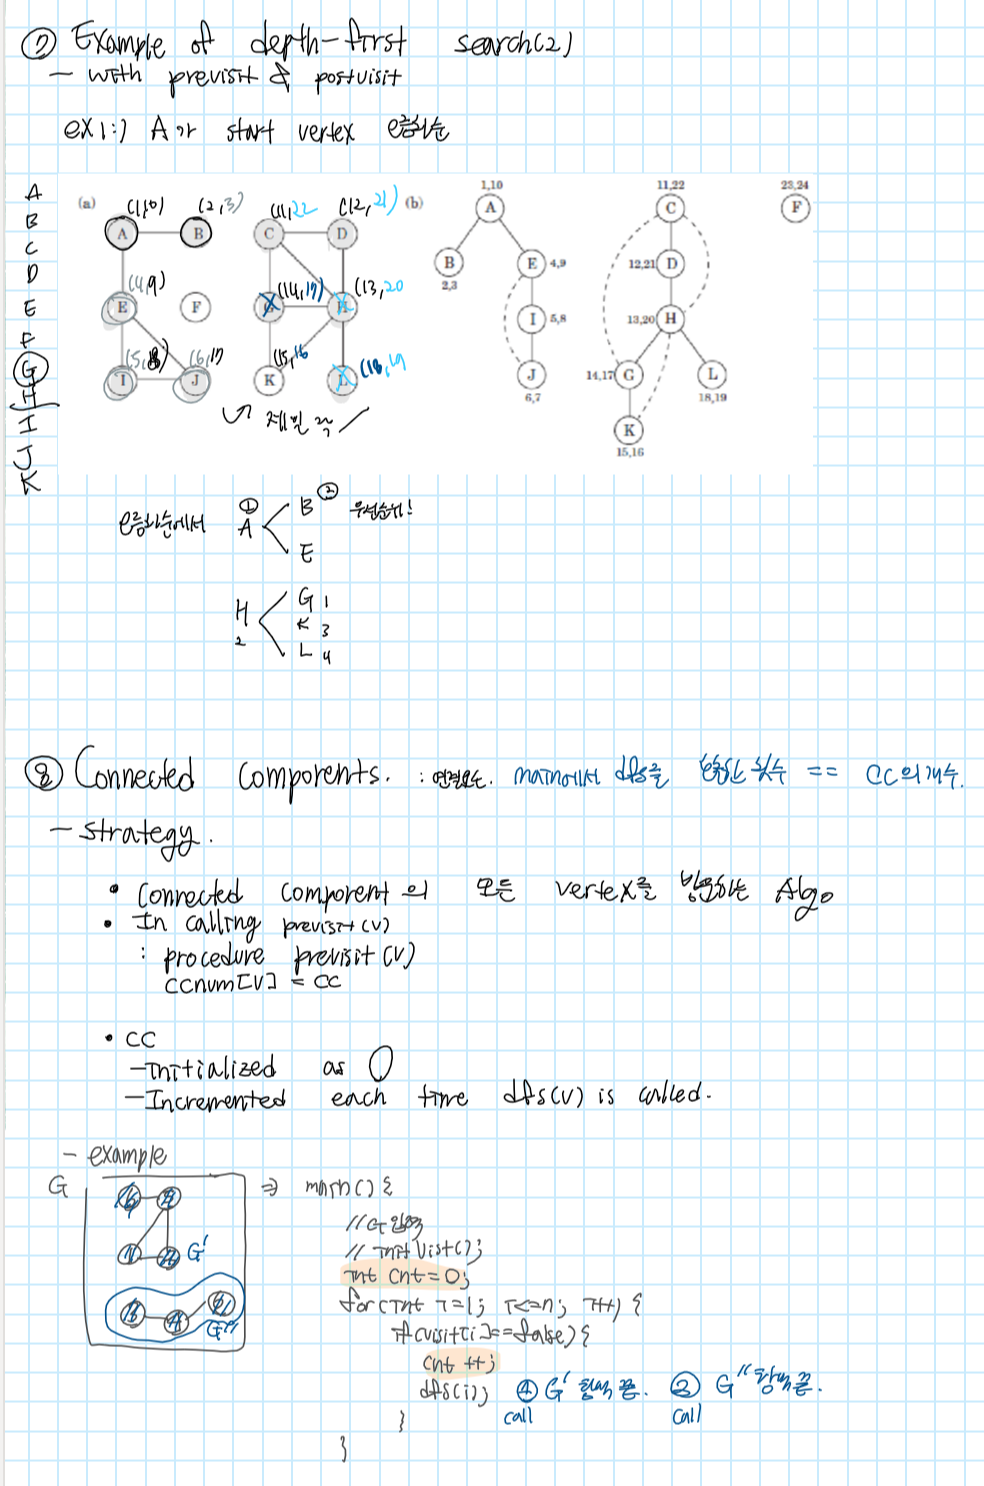 ⑦ Example of depth-first search(2)
- with previsit & postvisit
ex1:) A가 start vertex 오름차순
A
B
C
D
E
F
G
H
I
J
K
(a) (1,10) (2,3) (11,22 (12,21) (b)
A B C D
(4,9) (14,17) (13,20
E F G H
(5,8) (6,7) (15,16 (18,19
I J K L
1,10 11,22 23,24
A C F
B E 4,9 12,21 D
2,3
I 5,8 13,20 H
J 14,17 G L
6,7 18,19
K
15,16
오름차순에서 ① A B ② 우선순위!
E
H G 1
2 K 3
L 4
⑧ Connected components. : 연결요소. main에서 dfs를 호출한 횟수 == CC의 개수.
- strategy.
• Connected component의 모든 vertex를 방문하는 Algo
• In calling previsit(v)
: procedure previsit(v)
ccnum[v] = cc
• CC
- Initialized as 0
- Incremented each time dfs(v) is called.
- example
G ⇒ main() {
//G 입력
// init Visit();
int cnt = 0;
for(int i=1; i<=n; i++) {
if(visit[i]==false) {
cnt ++;
dfs(i); ① G' 탐색 끝. ② G'' 탐색 끝.
call call
}
}
G'
G''